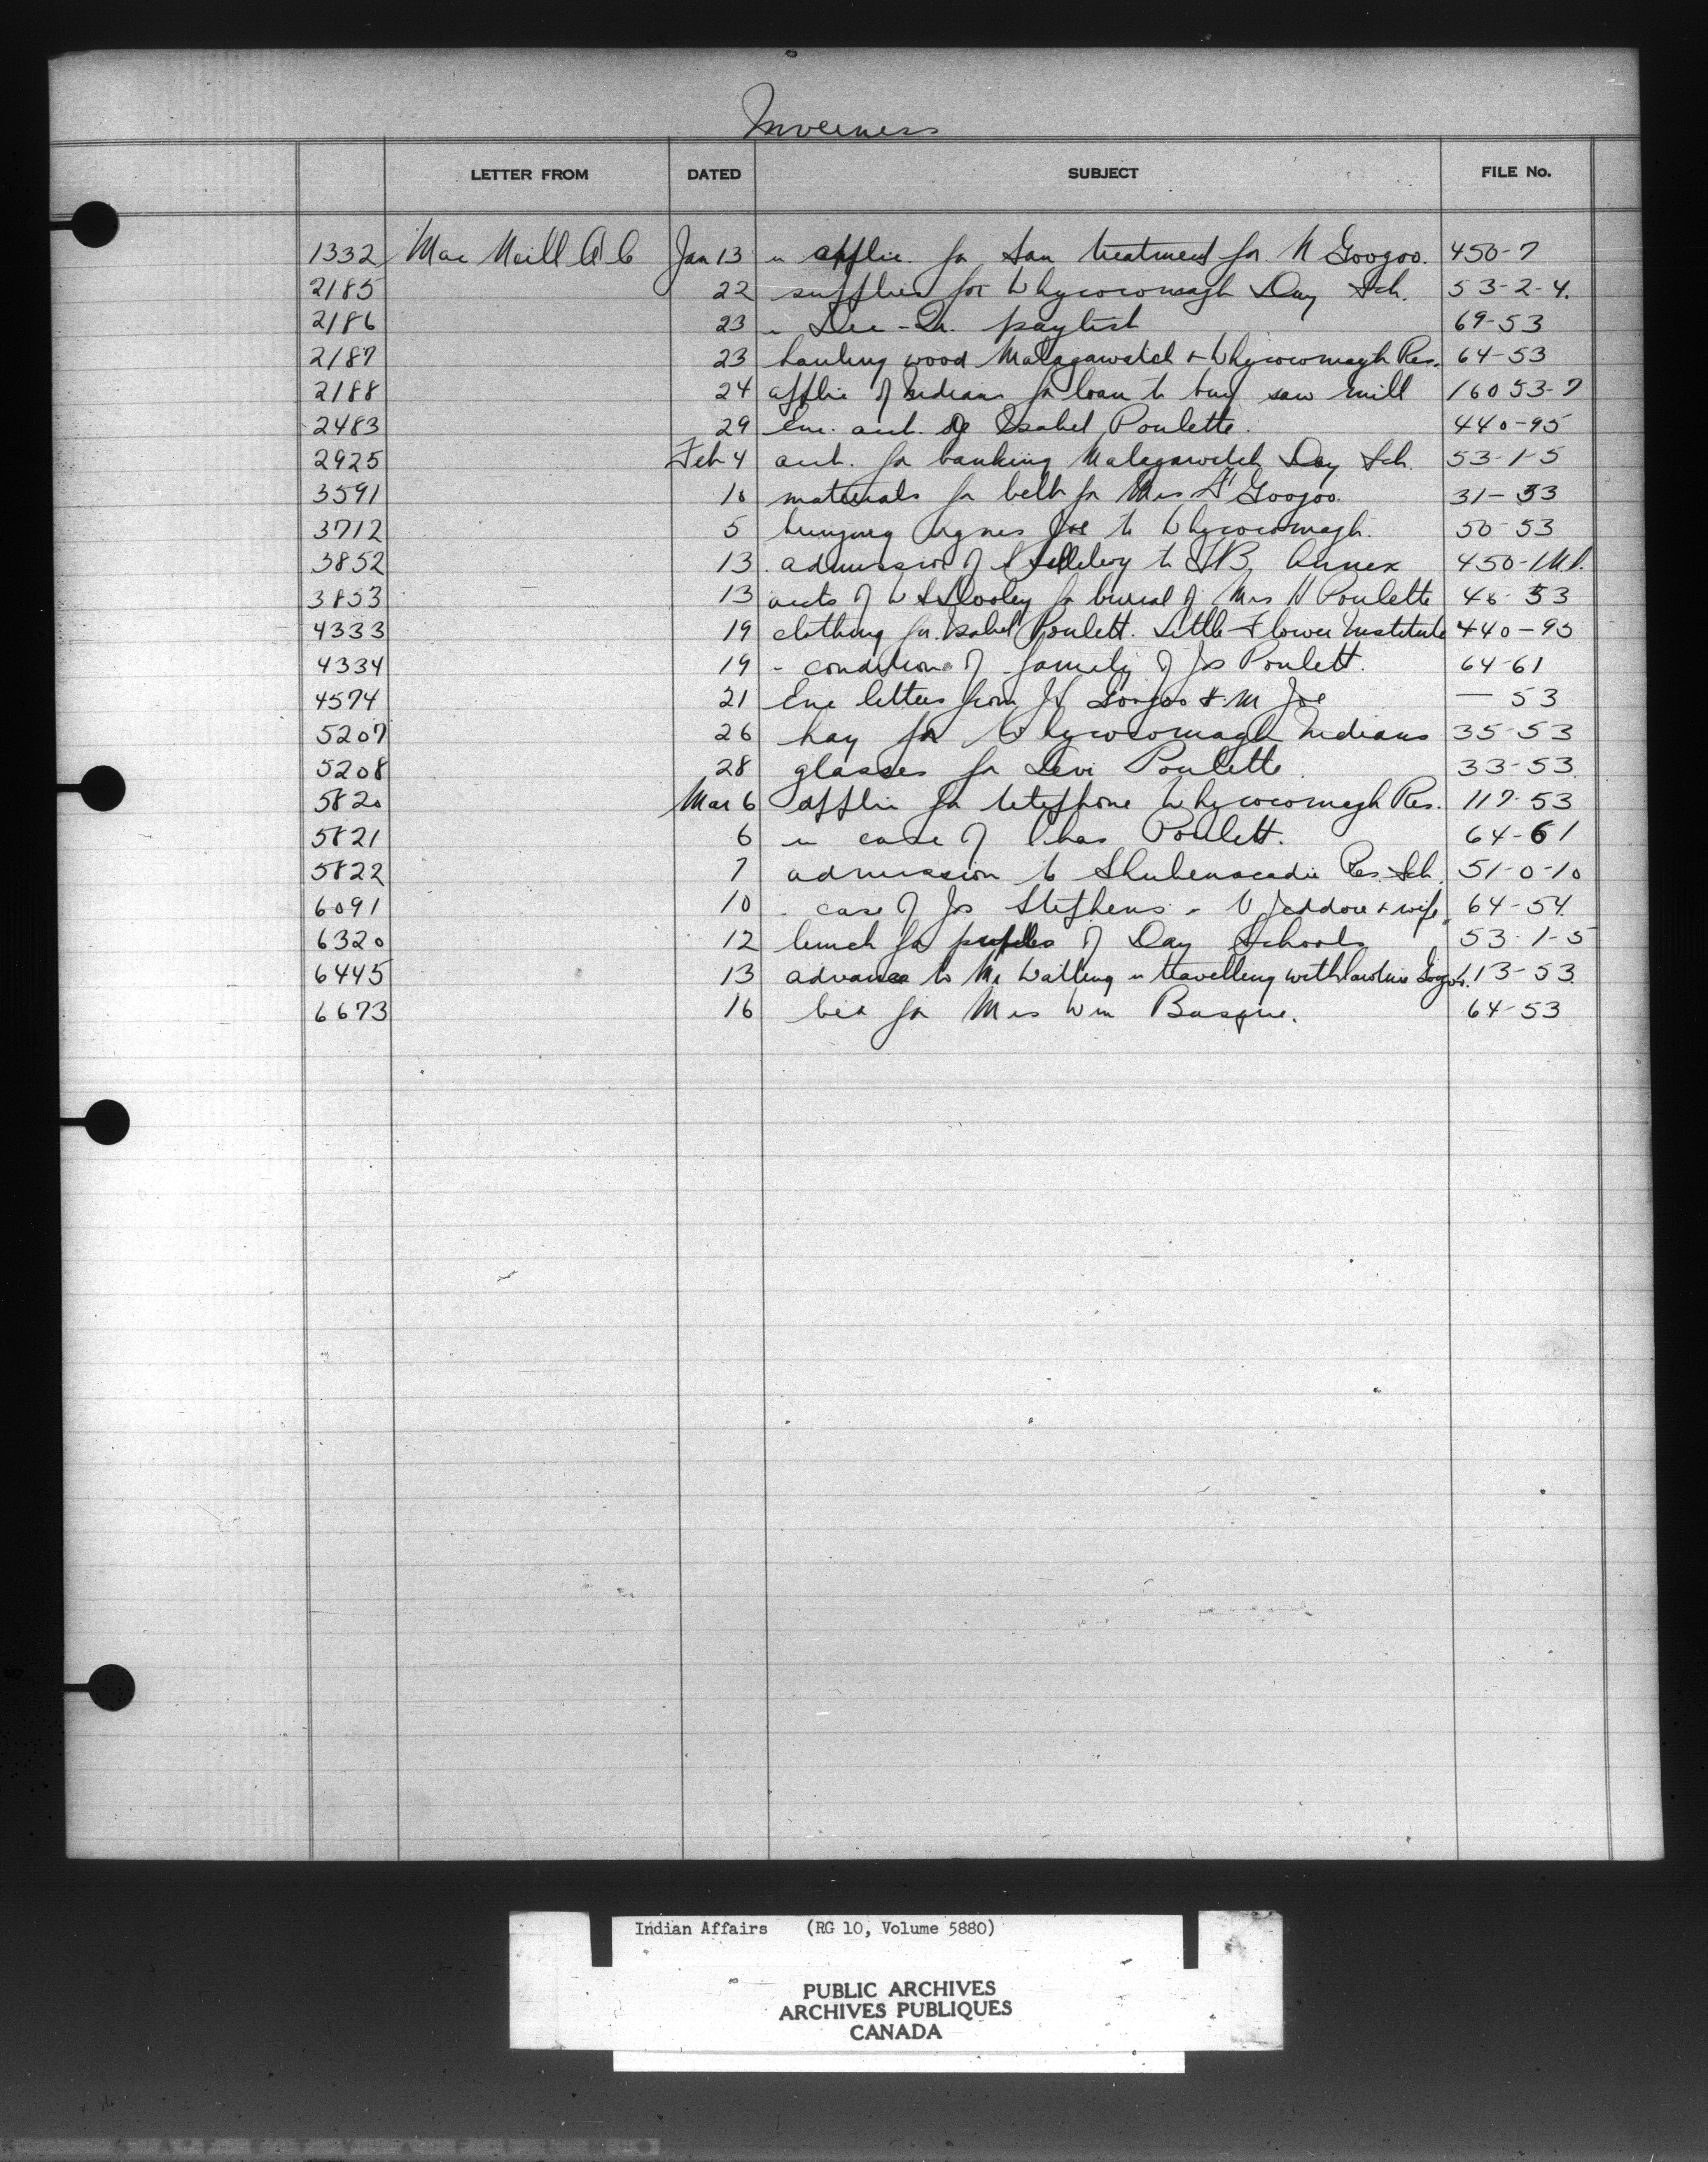 Inverness
LETTER FROM DATED SUBJECT FILE No.
1332 Mac Neill A C Jan 13 " applic. for San treatment for N Googoo. 450-7
2185 22 supplies for Whycocomagh Day Sch. 53-2-4.
2186 23 " Dec-Qr. paylist 69-53
2187 23 hauling wood Malagawatch & Whycocomagh Res. 64-53
2188 24 applic of Indians for loan to buy saw mill 16053-7
2483 29 Enc. acct. Isabel Poulette. 440-95
2925 Feb 4 acct. for banking Malagawatch Day Sch. 53-1-5
3591 10 materials for belt for Mrs Googoo. 31-53
3712 5 bringing Agnes Joe to Whycocomagh. 50-53
3852 13 admission of to Annex 450-1
3853 13 accts of W Dooley for burial of Mrs Poulette 46-53
4333 19 clothing for Isabel Poulett. Little Flower Institute 440-95
4334 19 - condition of family of Js Poulett. 64-61
4574 21 Enc letters from Googoo & M Joe — 53
5207 26 hay for Whycocomagh Indians 35-53
5208 28 glasses for Levi Poulette. 33-53.
5820 Mar 6 applic for telephone Whycocomagh Res. 117-53
5821 6 " case of Chas Poulett. 64-61
5822 7 admission to Shubenacadie Res. Sch. 51-0-10
6091 10 - case of Jos Stephens - V Jeddore & wife. 64-54.
6320 12 lunch for pupils of Day Schools 53-1-5
6445 13 advance to Mr Watling " travelling with Caroline Gogoo. 113-53.
6673 16 bed for Mrs Wm Basque. 64-53
Indian Affairs (RG 10, Volume 5880)
PUBLIC ARCHIVES
ARCHIVES PUBLIQUES
CANADA